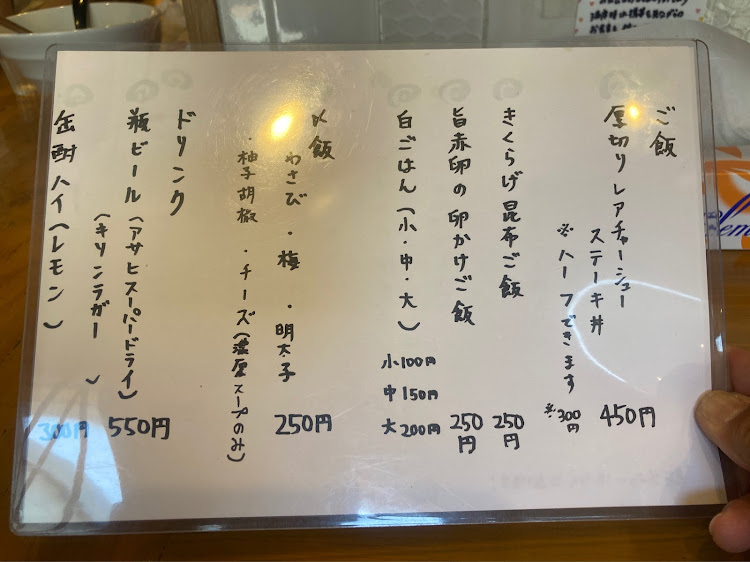 ご飯
厚切りレアチャーシュー
ステーキ丼 450円
※ハーフできます ※300円
きくらげ昆布ご飯 250円
旨赤卵の卵かけご飯 250円
白ごはん(小・中・大) 小100円
中150円
大200円
〆飯
わさび・梅・明太子 250円
・柚子胡椒・チーズ(濃厚スープのみ)
ドリンク
瓶ビール(アサヒスーパードライ) 550円
(キリンラガー)
缶酎ハイ(レモン) 300円